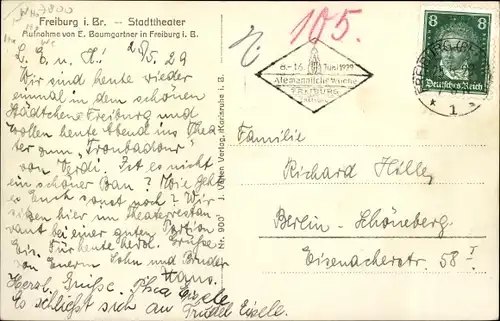 Freiburg i. Br. -- Stadttheater
Aufnahme von E. Baumgartner in Freiburg i. B.
105.
L. E. u. H.! 2/5. 29
Wir sind heute wieder
einmal in dem schönen
Städtchen Freiburg und
wollen heute Abend ins Thea
ter zum „Troubadour"
von Verdi. Ist es nicht
ein schöner Bau? Wie geht
es Euch sonst noch? Wir
sitzen hier im Theaterrestau
rant bei einer guten Portion
Eis. Für heute herzl. Grüße
von Euerm Sohn und Bruder
Hans.
Herzl. Grüße Eisele
Es schließt sich an Trudel Eisele.
Nr. 900 J. Verlag, Karlsruhe i. B.
8.-16. Juni 1929
Alemannische Woche
FREIBURG
8 8
Deutsches Reich
FREIBURG
* 1
Familie
Richard Hille,
Berlin - Schöneberg.
Eisenacherstr. 58 I